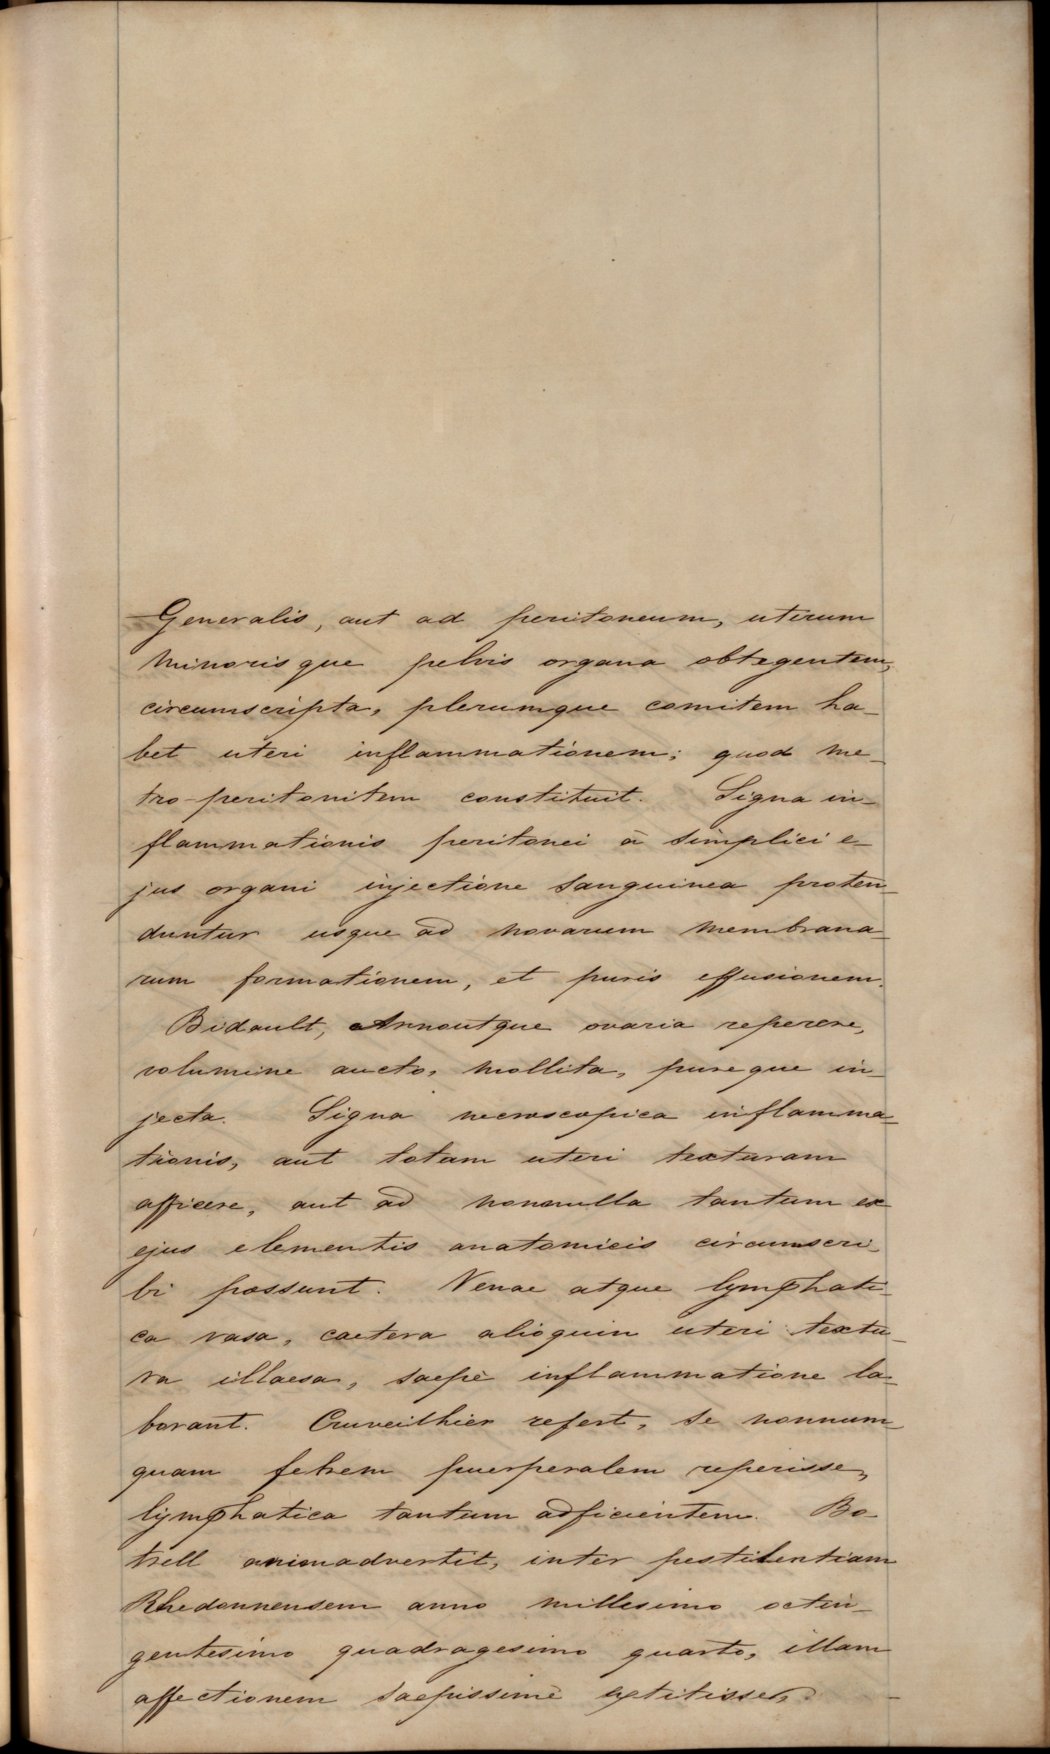 Generalis, aut ad peritoneum, uterum
minorisque pelvis organa obtegentem,
circumscripta, plerumque comitem ha-
bet uteri inflammationem; quod me-
tro-peritonitem constituit. Signa in-
flammationis peritonei à simplici e-
jus organi injectione sanguinea proten-
duntur usque ad novarum membrana-
rum formationem, et puris effusionem.
Bidault, Arnoutque ovaria reperere,
volumine aucto, mollita, pureque in-
jecta. Signa necroscopica inflamma-
tionis, aut totam uteri texturam
afficere, aut ad nonnulla tantum ex
ejus elementis anatomicis circumscri-
bi possunt. Venae atque lymphati-
ca vasa, caetera alioquin uteri textu-
ra illaesa, saepè inflammatione la-
borant. Cruveilhier refert, se nonnum-
quam febrem puerperalem reperisse,
lymphatica tantum adficientem. Bo-
trell animadvertit, inter pestilentiam
Rhedonnensem anno millesimo octin-
gentesimo quadragesimo quarto, illam
affectionem saepissimè extitisse,